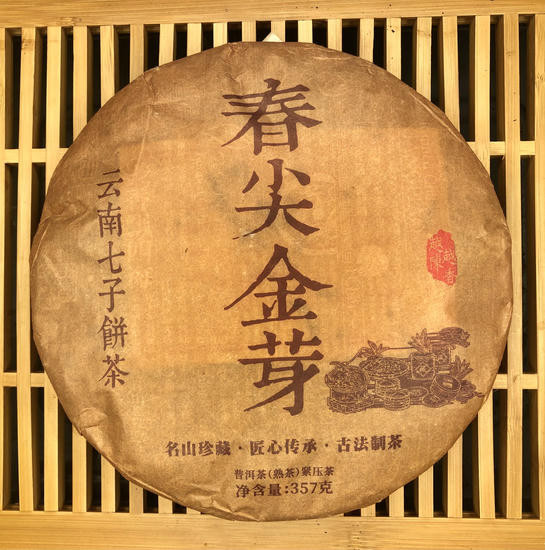 春尖金芽
云南七子餅茶
越陳
越香
名山珍藏·匠心传承·古法制茶
普洱茶(熟茶)紧压茶
净含量:357克